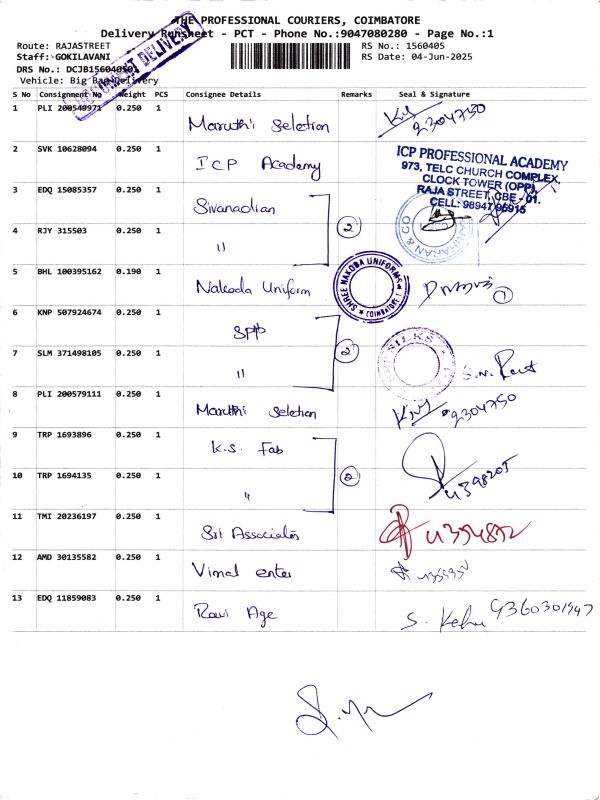 THE PROFESSIONAL COURIERS, COIMBATORE
Delivery Runsheet - PCT - Phone No.:9047080280 - Page No.:1
Route: RAJASTREET
RS No.: 1560405
Staff: GOKILAVANI
RS Date: 04-Jun-2025
DRS No.: DCJB1560405
Vehicle: Big Bag Delivery
DOCUMENT DELIVERY
S No Consignment No Weight PCS Consignee Details Remarks Seal & Signature
1 PLI 200549971 0.250 1 Maruthi Seletion 2304750
2 SVK 10628094 0.250 1 ICP Academy
ICP PROFESSIONAL ACADEMY
973, TELC CHURCH COMPLEX,
CLOCK TOWER (OPP),
RAJA STREET, CBE - 01.
CELL: 98947 95915
3 EDQ 15085357 0.250 1 Sivanadian
2
4 RJY 315503 0.250 1 "
HARIHARAN & CO
5 BHL 100395162 0.190 1 Nakoda Uniform
SHREE NAKODA UNIFORMS
COIMBATORE-1
1
6 KNP 507924674 0.250 1 SPP
2
SILKS
7 SLM 371498105 0.250 1 "
8 PLI 200579111 0.250 1 Maruthi Seletion 2304750
9 TRP 1693896 0.250 1 K.S. Fab
2
10 TRP 1694135 0.250 1 " 4398205
11 TMI 20236197 0.250 1 Sri Associates
12 AMD 30135582 0.250 1 Vimal enter
13 EDQ 11859083 0.250 1 Ravi Age 9360301947